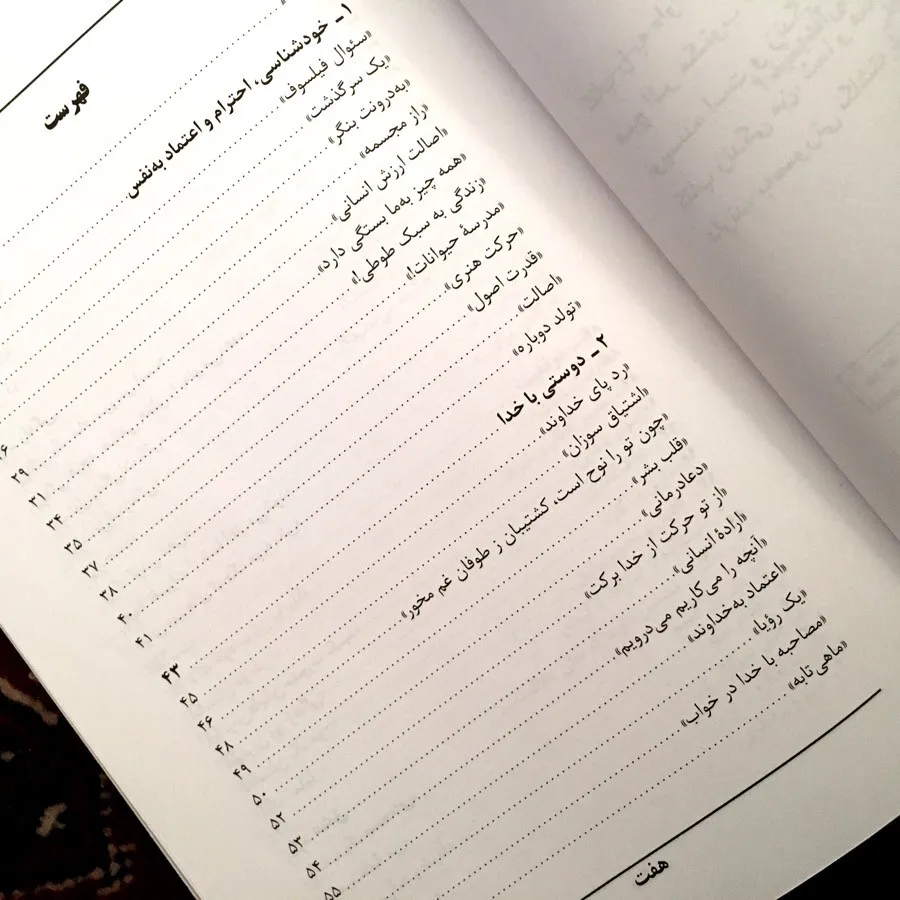 فهرست
۱ ـ خودشناسی، احترام و اعتماد به‌نفس
«سئوال فیلسوف»
«یک سرگذشت»
«به‌درونت بنگر»
«راز مجسمه»
«اصالت ارزش انسانی» ۲۹
«همه چیز به‌ما بستگی دارد» ۳۱
«زندگی به سبک طوطی!» ۳۴
«مدرسهٔ حیوانات!» ۳۵
«حرکت هنری» ۳۷
«قدرت اصول» ۳۸
«اصالت» ۴۰
«تولد دوباره» ۴۱
۲ ـ دوستی با خدا ۴۳
«رد پای خداوند» ۴۵
«اشتیاق سوزان» ۴۶
«چون تو را نوح است کشتیبان ز طوفان غم مخور» ۴۸
«قلب بشر» ۴۹
«دعادرمانی» ۵۰
«از تو حرکت از خدا برکت» ۵۲
«ارادهٔ انسانی» ۵۳
«آنچه را می‌کاریم می‌درویم» ۵۴
«اعتماد به‌خداوند» ۵۵
«یک رؤیا»
«مصاحبه با خدا در خواب»
«ماهی تابه»
هفت